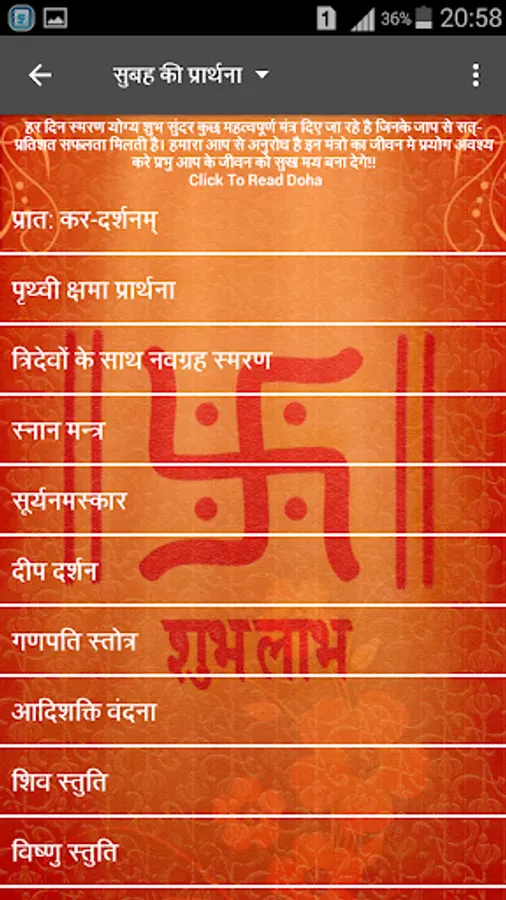 1 36% 20:58
सुबह की प्रार्थना
हर दिन स्मरण योग्य शुभ सुंदर कुछ महत्वपूर्ण मंत्र दिए जा रहे है जिनके जाप से सत्-
प्रतिशत सफलता मिलती है। हमारा आप से अनुरोध है इन मंत्रो का जीवन मे प्रयोग अवश्य
करे प्रभु आप के जीवन को सुख मय बना देगे!!
Click To Read Doha
प्रात: कर-दर्शनम्
पृथ्वी क्षमा प्रार्थना
त्रिदेवों के साथ नवग्रह स्मरण
स्नान मन्त्र
सूर्यनमस्कार
दीप दर्शन
गणपति स्तोत्र
शुभ लाभ
आदिशक्ति वंदना
शिव स्तुति
विष्णु स्तुति